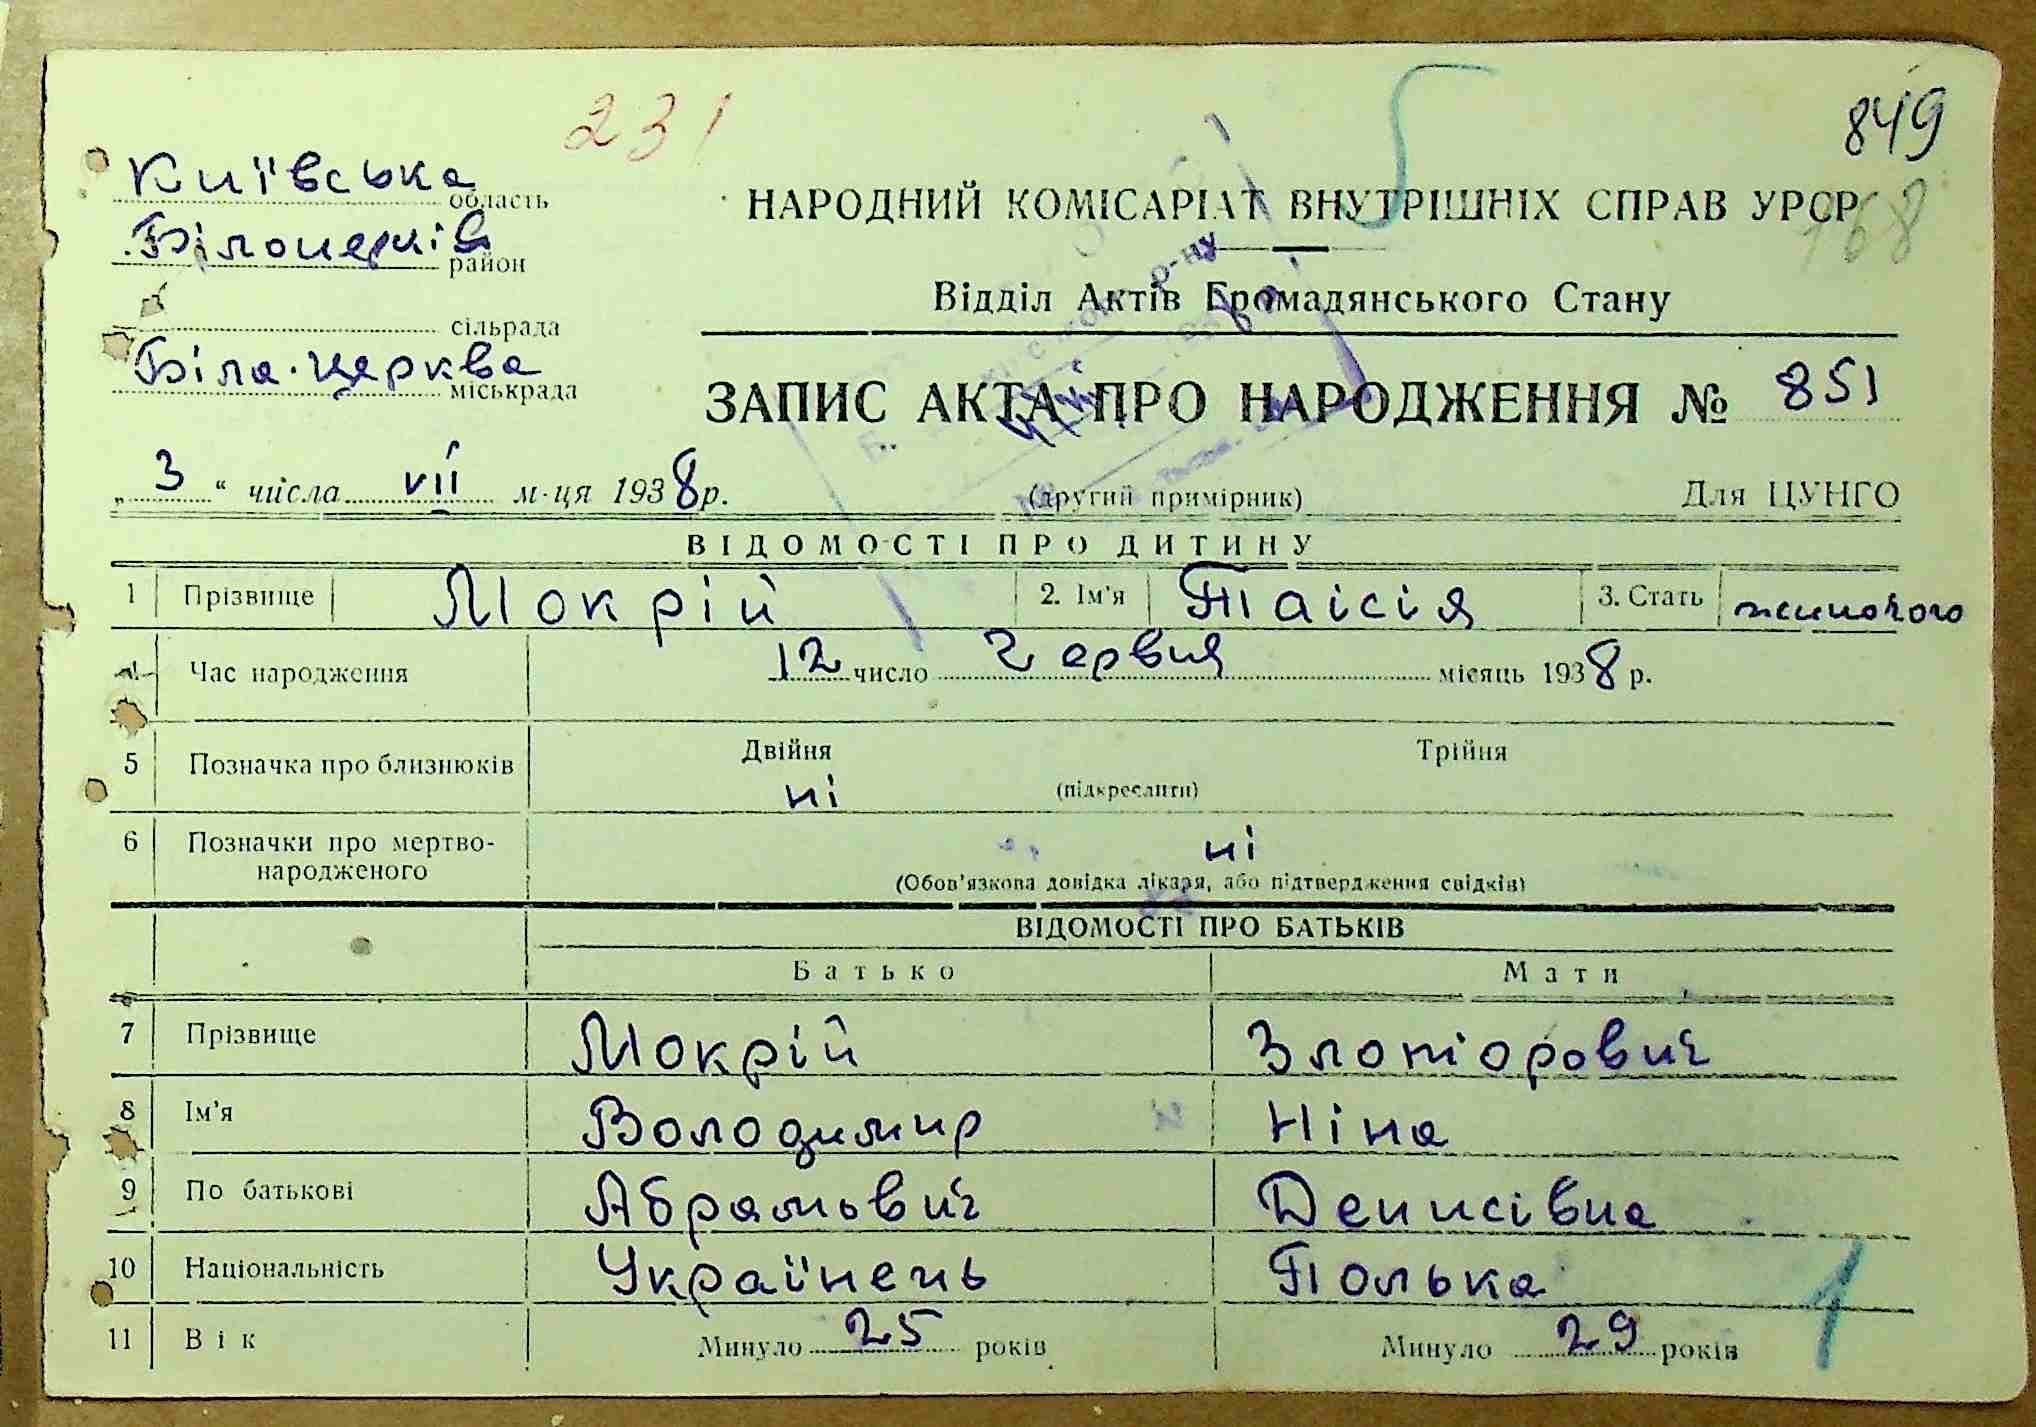 231
849
168
Київська область
Білоцерків район
сільрада
Біла-церква міськрада
НАРОДНИЙ КОМІСАРІАТ ВНУТРІШНІХ СПРАВ УРСР
Відділ Актів Громадянського Стану
ЗАПИС АКТА ПРО НАРОДЖЕННЯ № 851
„ 3 “ числа VII м-ця 1938 р. (другий примірник) Для ЦУНГО
ВІДОМОСТІ ПРО ДИТИНУ
1 Прізвище Мокрій 2. Ім'я Таісія 3. Стать жиночого
Час народження 12 число Червня місяць 1938 р.
5 Позначка про близнюків Двійня Трійня
ні (підкреслити)
6 Позначки про мертво-
народженого ні
(Обов'язкова довідка лікаря, або підтвердження свідків)
ВІДОМОСТІ ПРО БАТЬКІВ
Батько Мати
7 Прізвище Мокрій Злоторович
8 Ім'я Володимир Ніна
9 По батькові Абрамович Денисівна
10 Національність Українець Полька
11 Вік Минуло 25 років Минуло 29 років
1